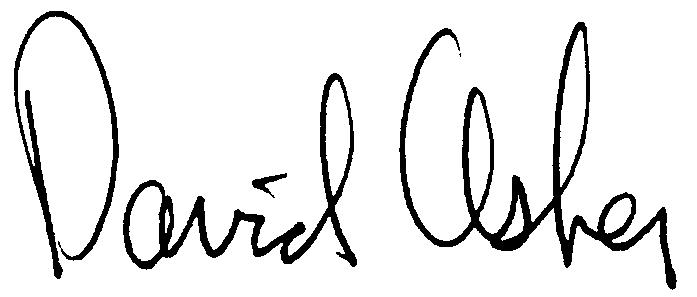 David Asher